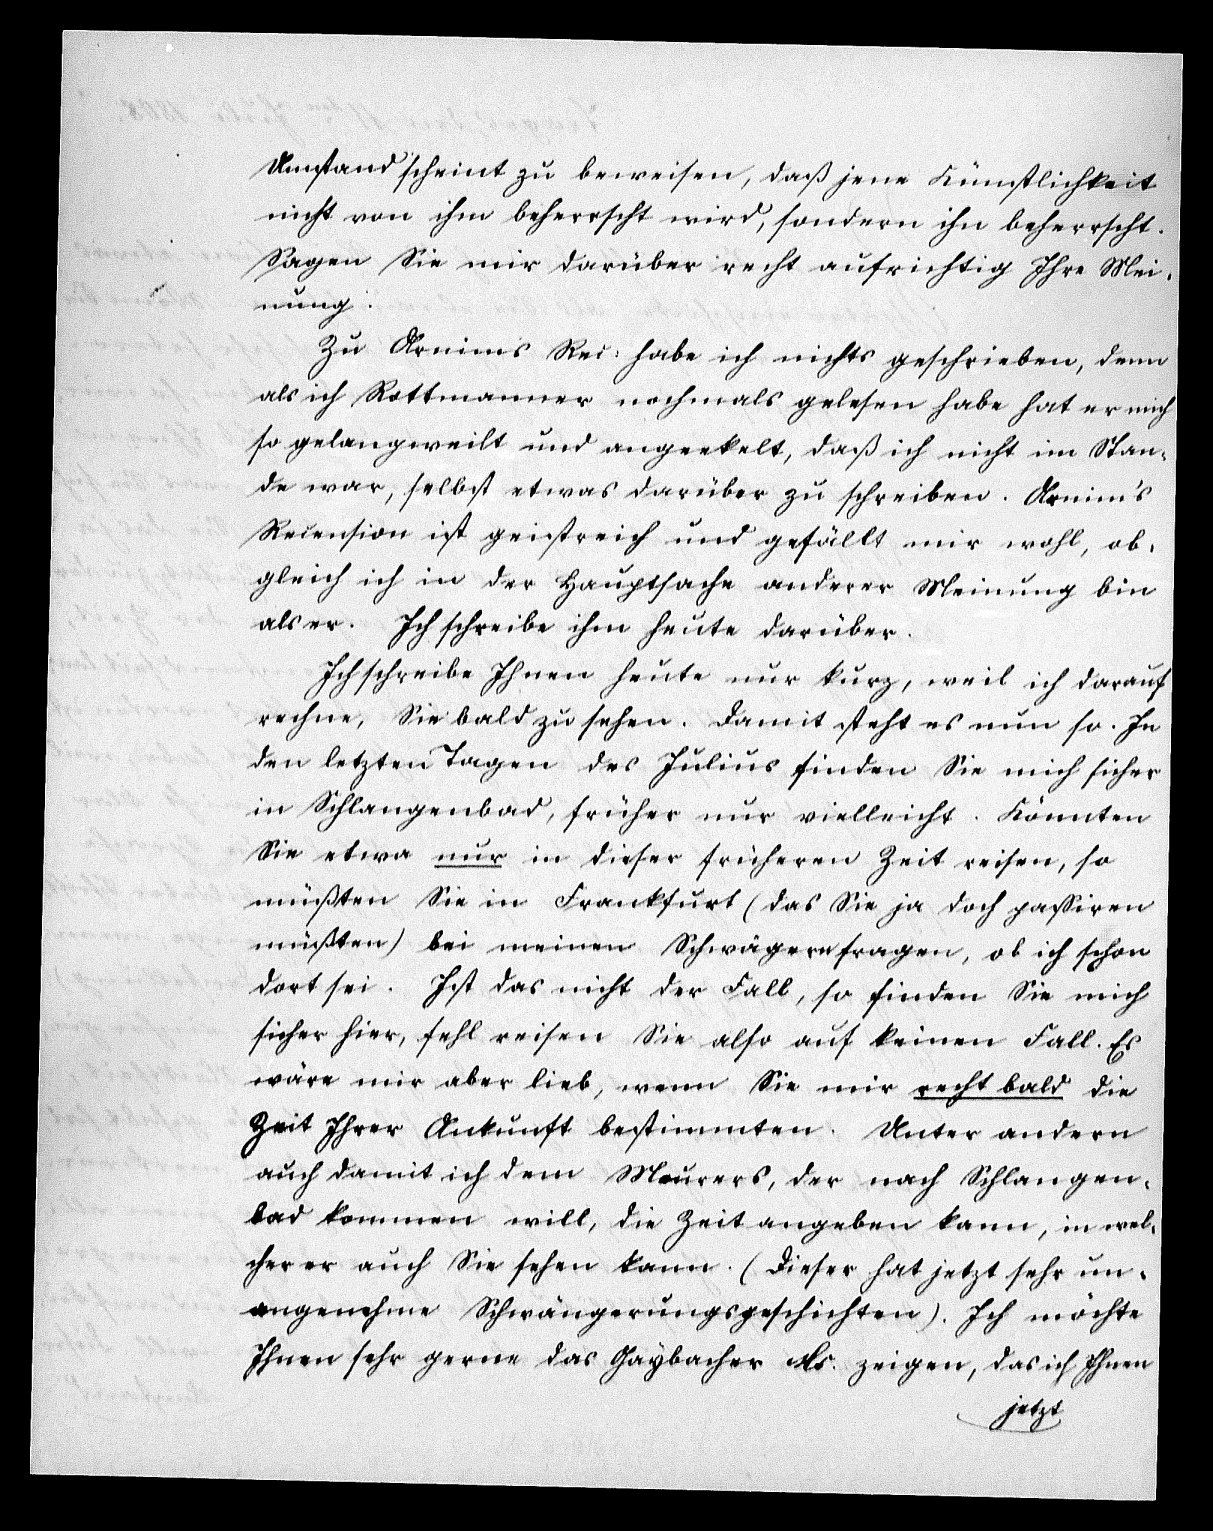 Umstand scheint zu beweisen, daß jene Künstlichkeit
nicht von ihm beherrscht wird, sondern ihn beherrscht.
Sagen Sie mir darüber recht aufrichtig Ihre Mei-
nung.
Zu Arnims Rec: habe ich nichts geschrieben, denn
als ich Rottmanner nochmals gelesen habe hat er mich
so gelangweilt und angeekelt, daß ich nicht im Stan-
de war, selbst etwas darüber zu schreiben. Arnim's
Recension ist geistreich und gefällt mir wohl, ob-
gleich ich in der Hauptsache anderer Meinung bin
als er. Ich schreibe ihm heute darüber.
Ich schreibe Ihnen heute nur kurz, weil ich darauf
rechne, Sie bald zu sehen. Damit steht es nun so. In
den letzten Tagen des Julius finden Sie mich sicher
in Schlangenbad, früher nur vielleicht. Könnten
Sie etwa nur in dieser früheren Zeit reisen, so
müßten Sie in Frankfurt (das Sie ja doch passiren
müßten) bei meinen Schwägern fragen, ob ich schon
dort sei. Ist das nicht der Fall, so finden Sie mich
sicher hier, fehl reisen Sie also auf keinen Fall. Es
wäre mir aber lieb, wenn Sie mir recht bald die
Zeit Ihrer Ankunft bestimmten. Unter andern
auch damit ich dem Meurers, der nach Schlangen-
bad kommen will, die Zeit angeben kann, in wel-
cher er auch Sie sehen kann. (Dieser hat jetzt sehr un-
angenehme Schwängerungsgeschichten). Ich möchte
Ihnen sehr gerne das Gaybacher Ms. zeigen, das ich Ihnen
jetzt